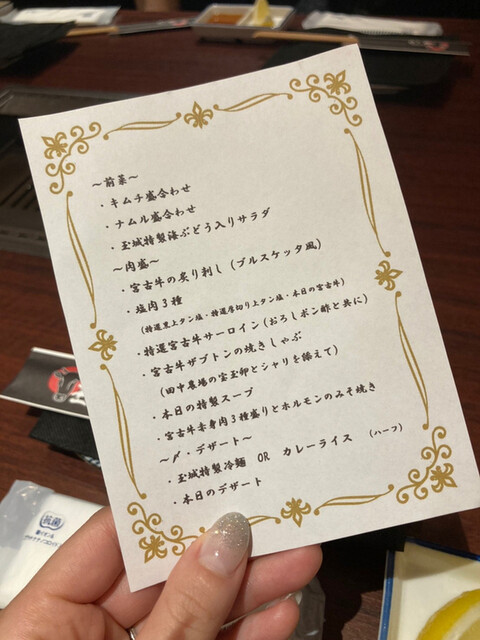 ～前菜～
・キムチ盛合わせ
・ナムル盛合わせ
・玉城特製海ぶどう入りサラダ
～肉盛～
・宮古牛の炙り刺し（ブルスケッタ風）
・塩肉３種
（特選黒上タン塩・特選厚切り上タン塩・本日の宮古牛）
・特選宮古牛サーロイン（おろしポン酢と共に）
・宮古牛ザブトンの焼きしゃぶ
（田中農場の宝玉卵とシャリを添えて）
・本日の特製スープ
・宮古牛赤身肉３種盛りとホルモンのみそ焼き
～〆・デザート～
・玉城特製冷麺　OR　カレーライス　（ハーフ）
・本日のデザート
抗菌